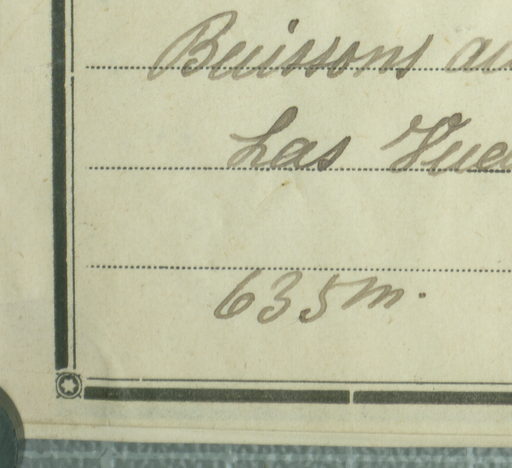 Buissons au
Las Vue
635 m.